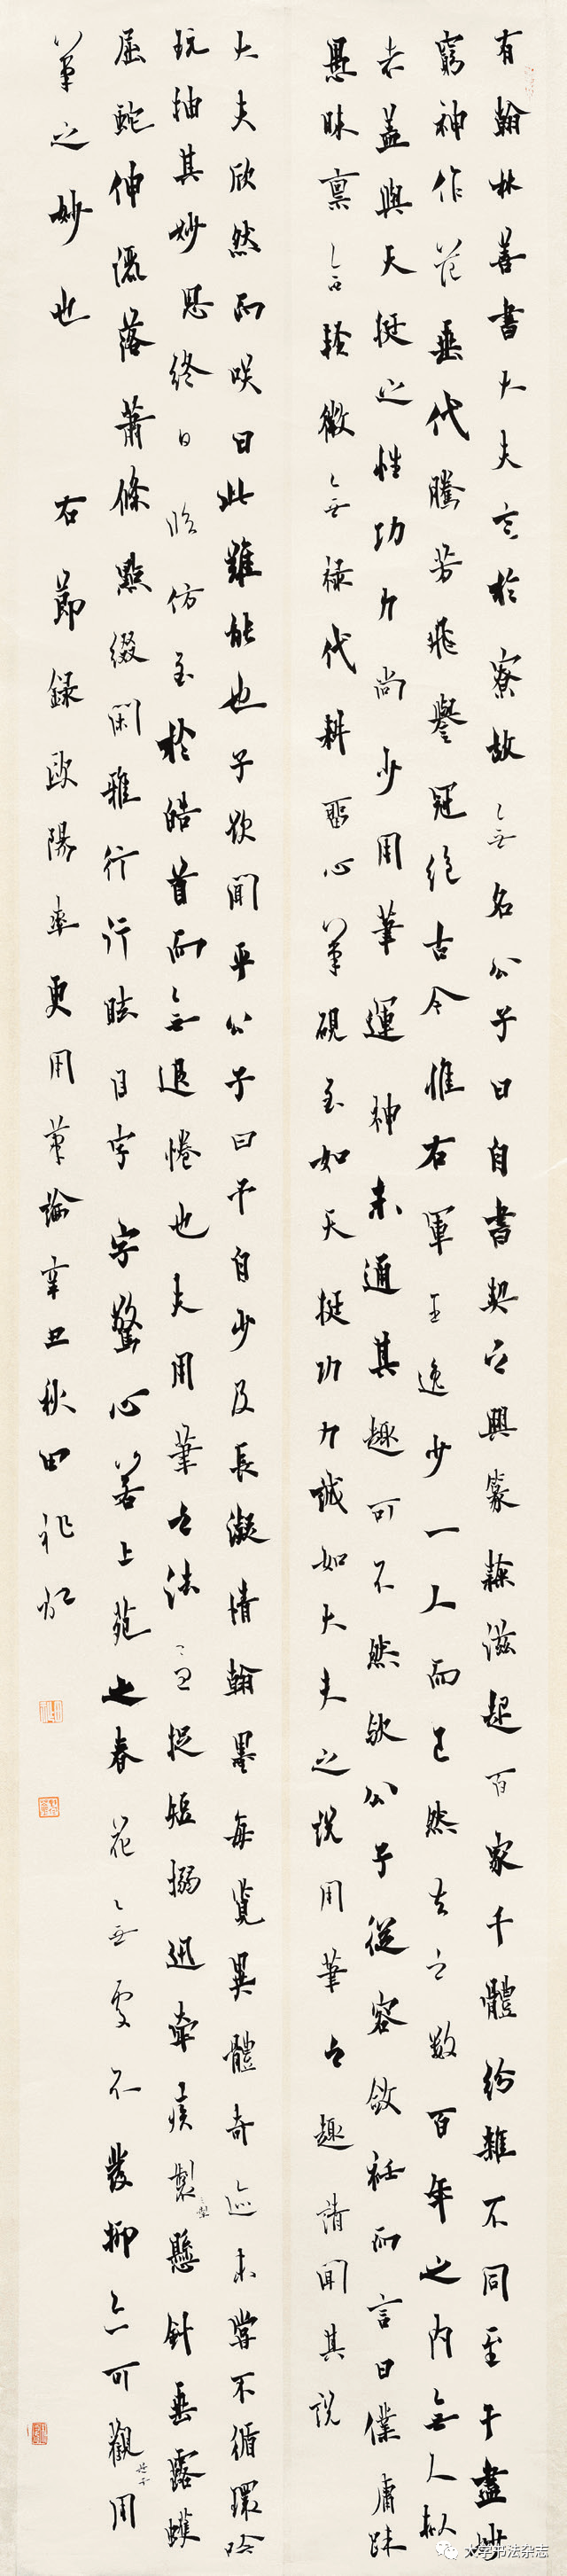 有翰林善書大夫言於寮故無名公子曰自書契之興篆隸滋起百家千體紛雜不同至于盡妙
窮神作范垂代騰芳飛譽冠絕古今惟右軍王逸少一人而已然去之數百年之內無人擬
者蓋與天挺之性功力尚少用筆運神未通其趣可不然歟公子從容斂衽而言曰僕庸昧
愚昧稟言輕微無祿代耕留心筆硯至如天挺功力誠如大夫之說用筆之趣請聞其說
大夫欣然而咲曰此難能也子欲聞乎公子曰予自少及長凝情翰墨每覽異體奇迹未嘗不循環吟
玩抽其妙思終日臨仿至於皓首而無退倦也夫用筆之法急捉短搦迅牽疾製懸針垂露蠖
屈蛇伸灑落蕭條點綴閑雅行行眩目字字驚心若上苑之春花無處不發抑亦可觀用
筆之妙也 右節錄歐陽率更用筆論辛丑秋田
大学书法杂志